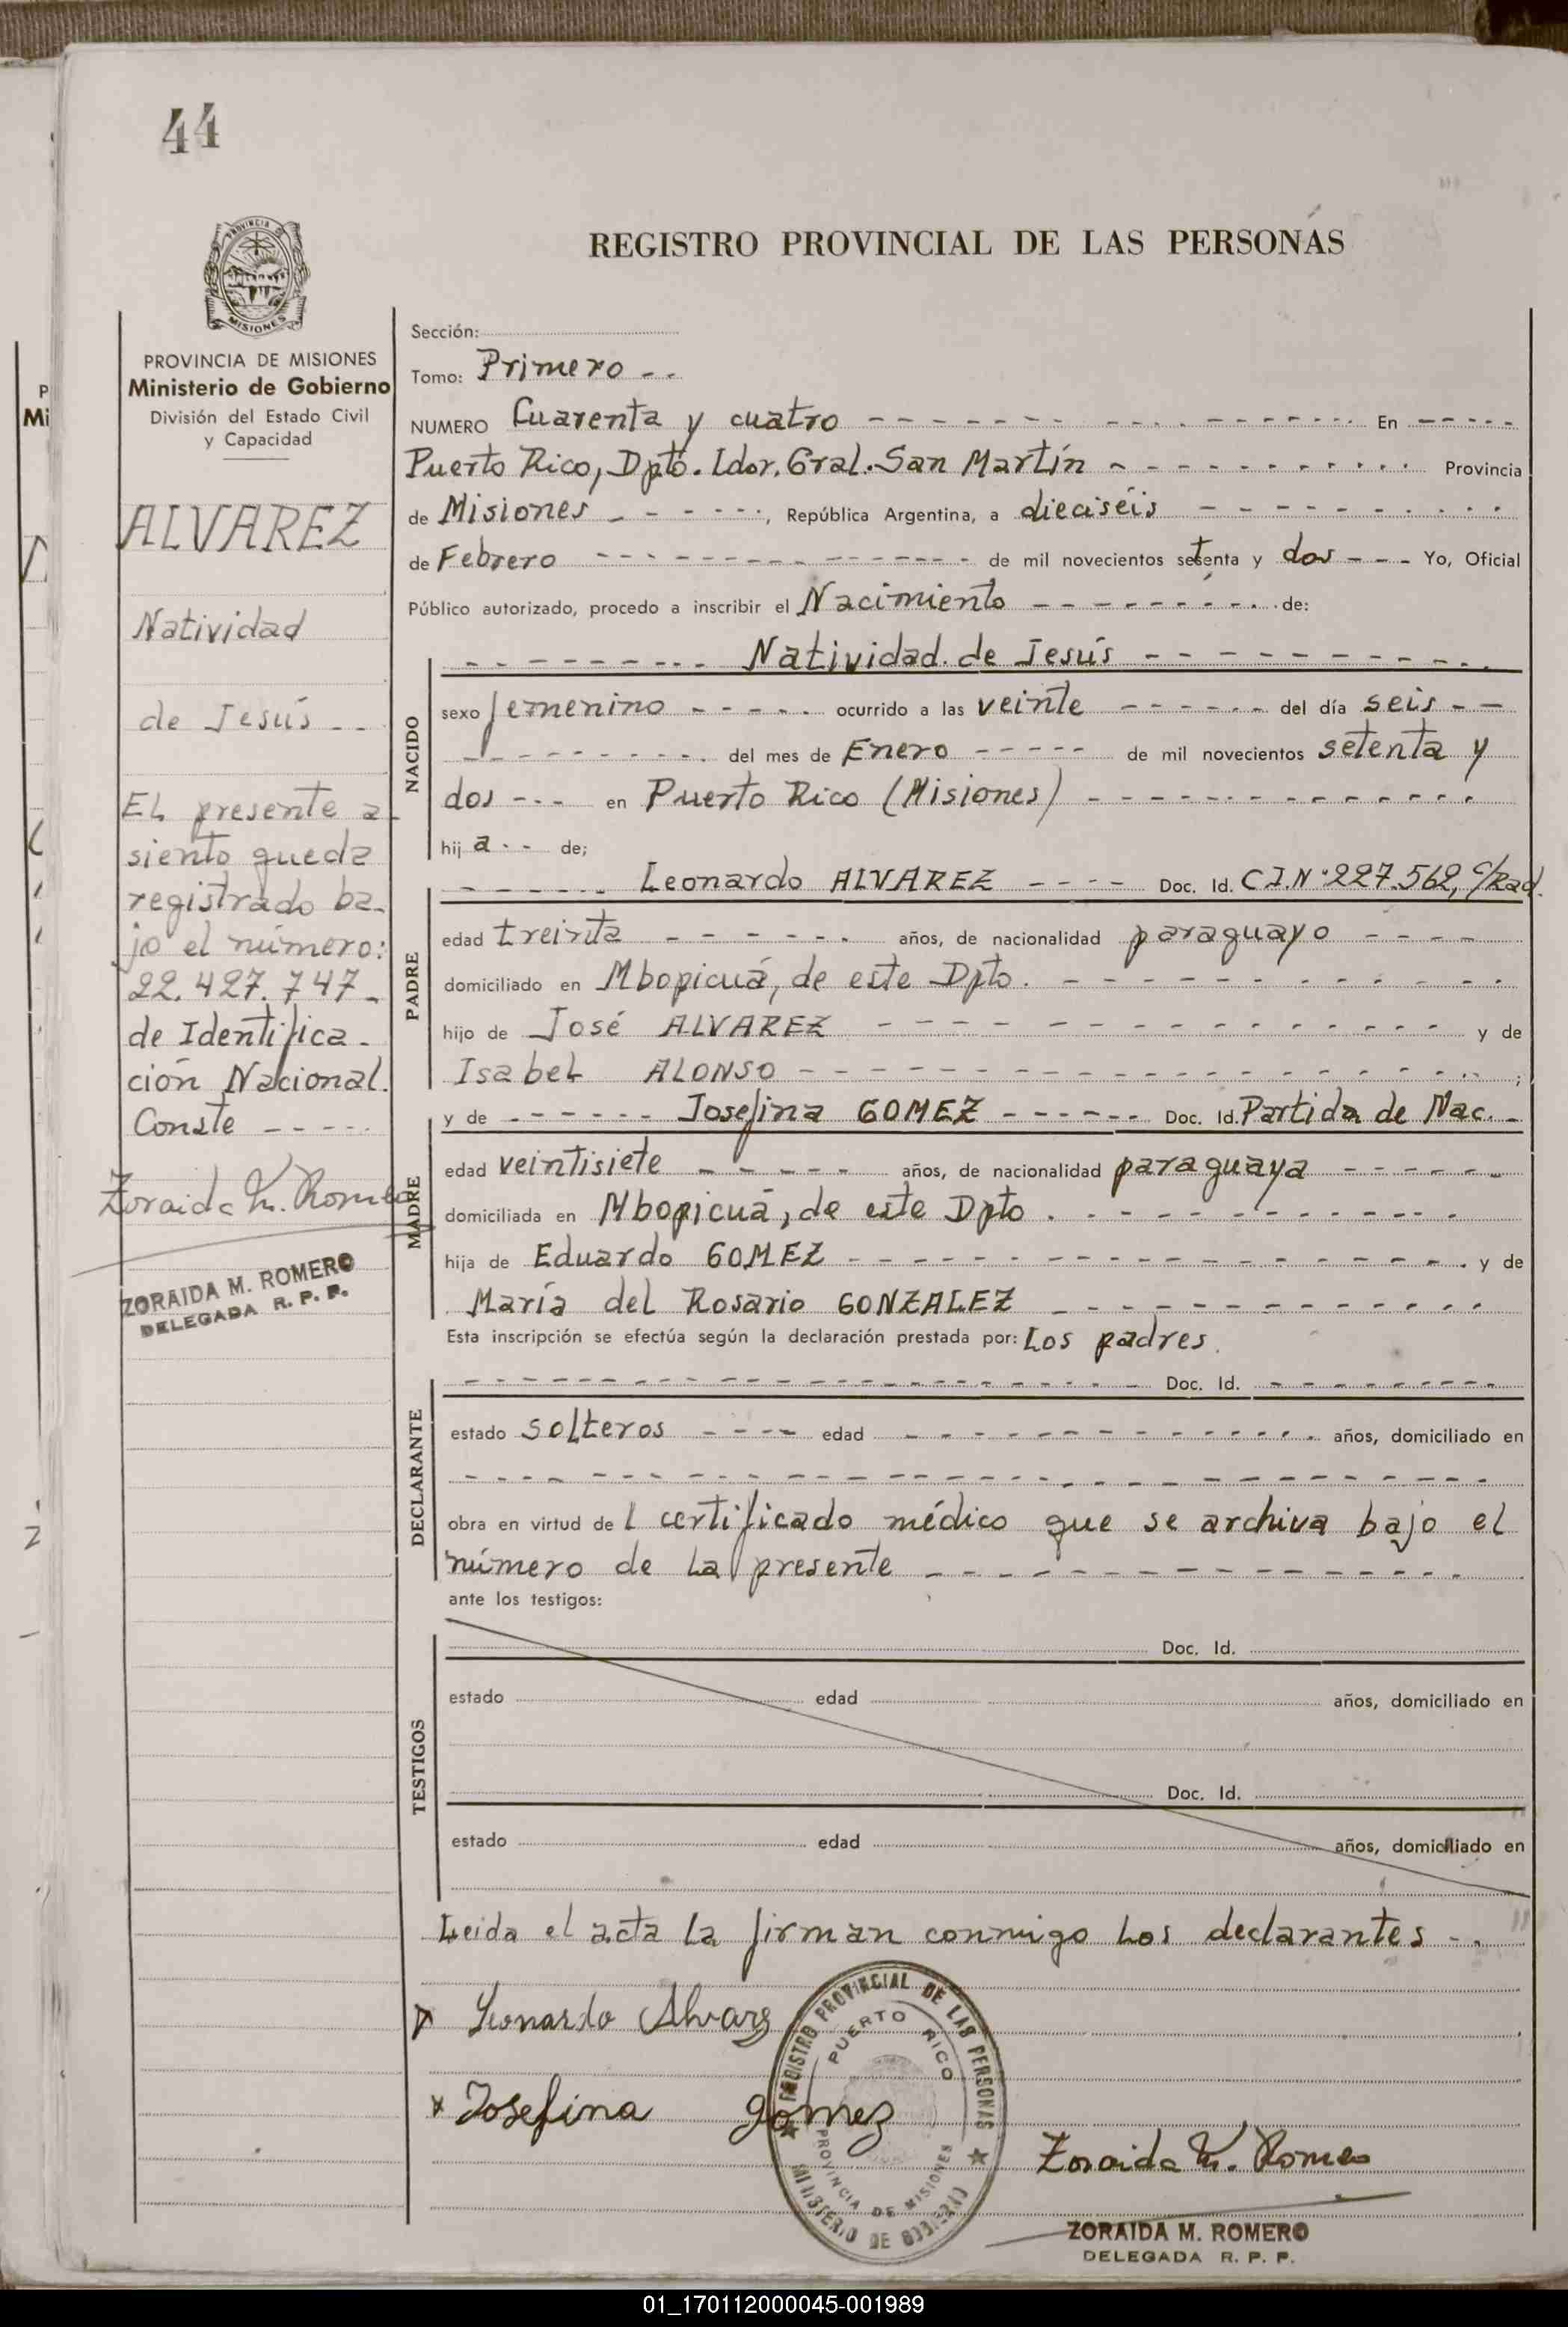 44
REGISTRO PROVINCIAL DE LAS PERSONAS
PROVINCIA DE
MISIONES
PROVINCIA DE MISIONES
Ministerio de Gobierno
División del Estado Civil
y Capacidad
ALVAREZ
Natividad
de Jesús --
EL presente a-
siento queda
registrado ba-
jo el número:
22.427.747-
de Identifica-
ción Nacional.
Conste -----
Zoraida M. Romero
ZORAIDA M. ROMERO
DELEGADA R. P. P.
Sección:
Tomo: Primero --
NUMERO Cuarenta y cuatro --- En ---
Puerto Rico, Dpto. Ldor. Gral. San Martín --- Provincia
de Misiones ---, República Argentina, a dieciséis ---
de Febrero --- de mil novecientos setenta y dos --- Yo, Oficial
Público autorizado, procedo a inscribir el Nacimiento --- de:
--- Natividad de Jesús ---
NACIDO
sexo femenino --- ocurrido a las veinte --- del día seis --
--- del mes de Enero --- de mil novecientos setenta y
dos --- en Puerto Rico (Misiones) ---
hij a -- de;
--- Leonardo ALVAREZ --- Doc. Id. C.I.Nº 227.562, c/Rad.
PADRE
edad treinta --- años, de nacionalidad paraguayo ---
domiciliado en Mbopicuá, de este Dpto. ---
hijo de José ALVAREZ --- y de
Isabel ALONSO --- ;
y de --- Josefina GOMEZ --- Doc. Id. Partida de Nac. -
MADRE
edad veintisiete --- años, de nacionalidad paraguaya ---
domiciliada en Mbopicuá, de este Dpto. ---
hija de Eduardo GOMEZ --- y de
María del Rosario GONZALEZ ---
Esta inscripción se efectúa según la declaración prestada por: Los padres.
--- Doc. Id. ---
DECLARANTE
estado solteros --- edad --- años, domiciliado en
---
obra en virtud de l certificado médico que se archiva bajo el
número de la presente ---
ante los testigos:
Doc. Id.
TESTIGOS
estado edad años, domiciliado en
Doc. Id.
estado edad años, domiciliado en
Leida el acta la firman conmigo los declarantes --
Leonardo Alvarez
x Josefina gomez
REGISTRO PROVINCIAL DE LAS PERSONAS
PUERTO RICO
PROVINCIA DE MISIONES
MINISTERIO DE GOBIERNO
Zoraida M. Romero
ZORAIDA M. ROMERO
DELEGADA R. P. P.
01_170112000045-001989